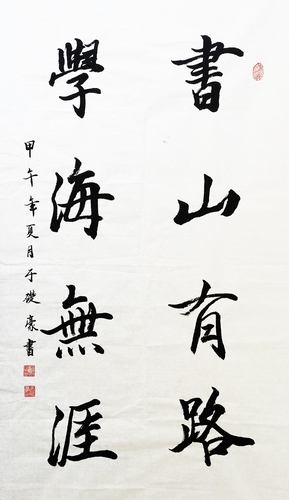 書山有路
學海無涯
甲午年夏月于礎豪書